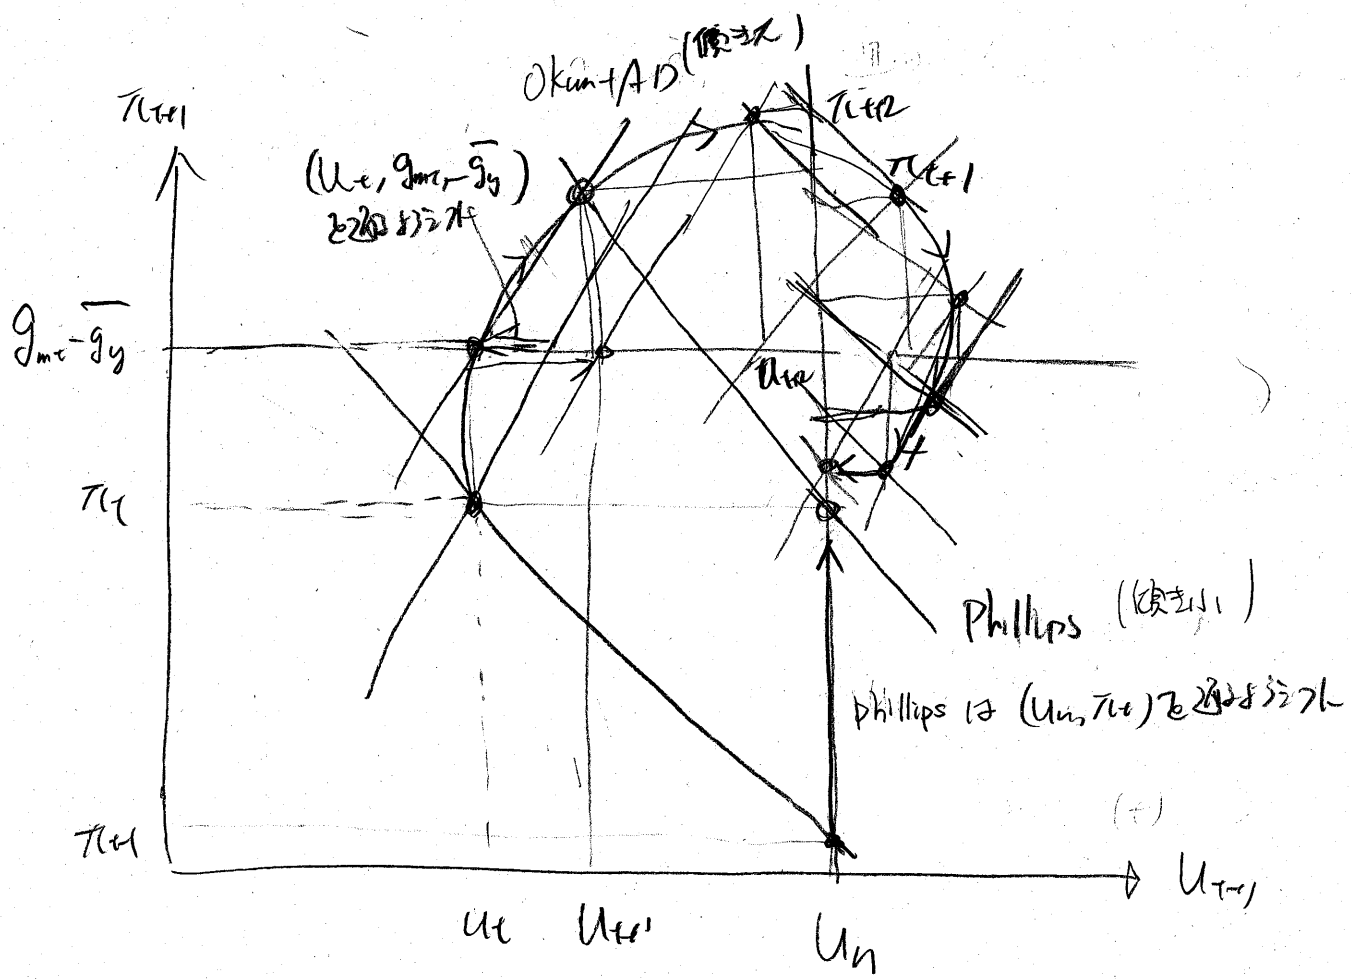 Okun+AD (傾き大)
π_{t+1}
π_{t+2}
(u_t, g_{mt}-\overline{g_y})
を通るようシフト
π_{t+1}
g_{mt}-\overline{g_y}
u_{t+2}
π_t
Phillips (傾き小)
phillips は (u_n, π_t) を通るようシフト
π_{t-1}
(+)
u_{t+1}
u_t
u_{t+1}
u_n